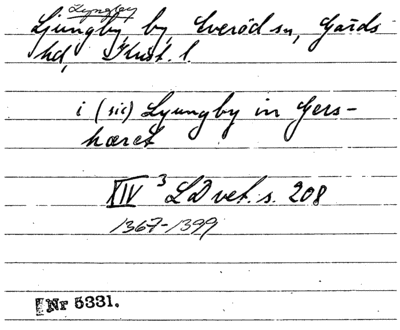 Lyngby
Ljungby, by, Everöd sn, Gärds
hd, Krist. l.
i (sic) Lyungby in Gers-
hæret
XIV 3 LD vet. s. 208
1367-1399
Nr 5331.